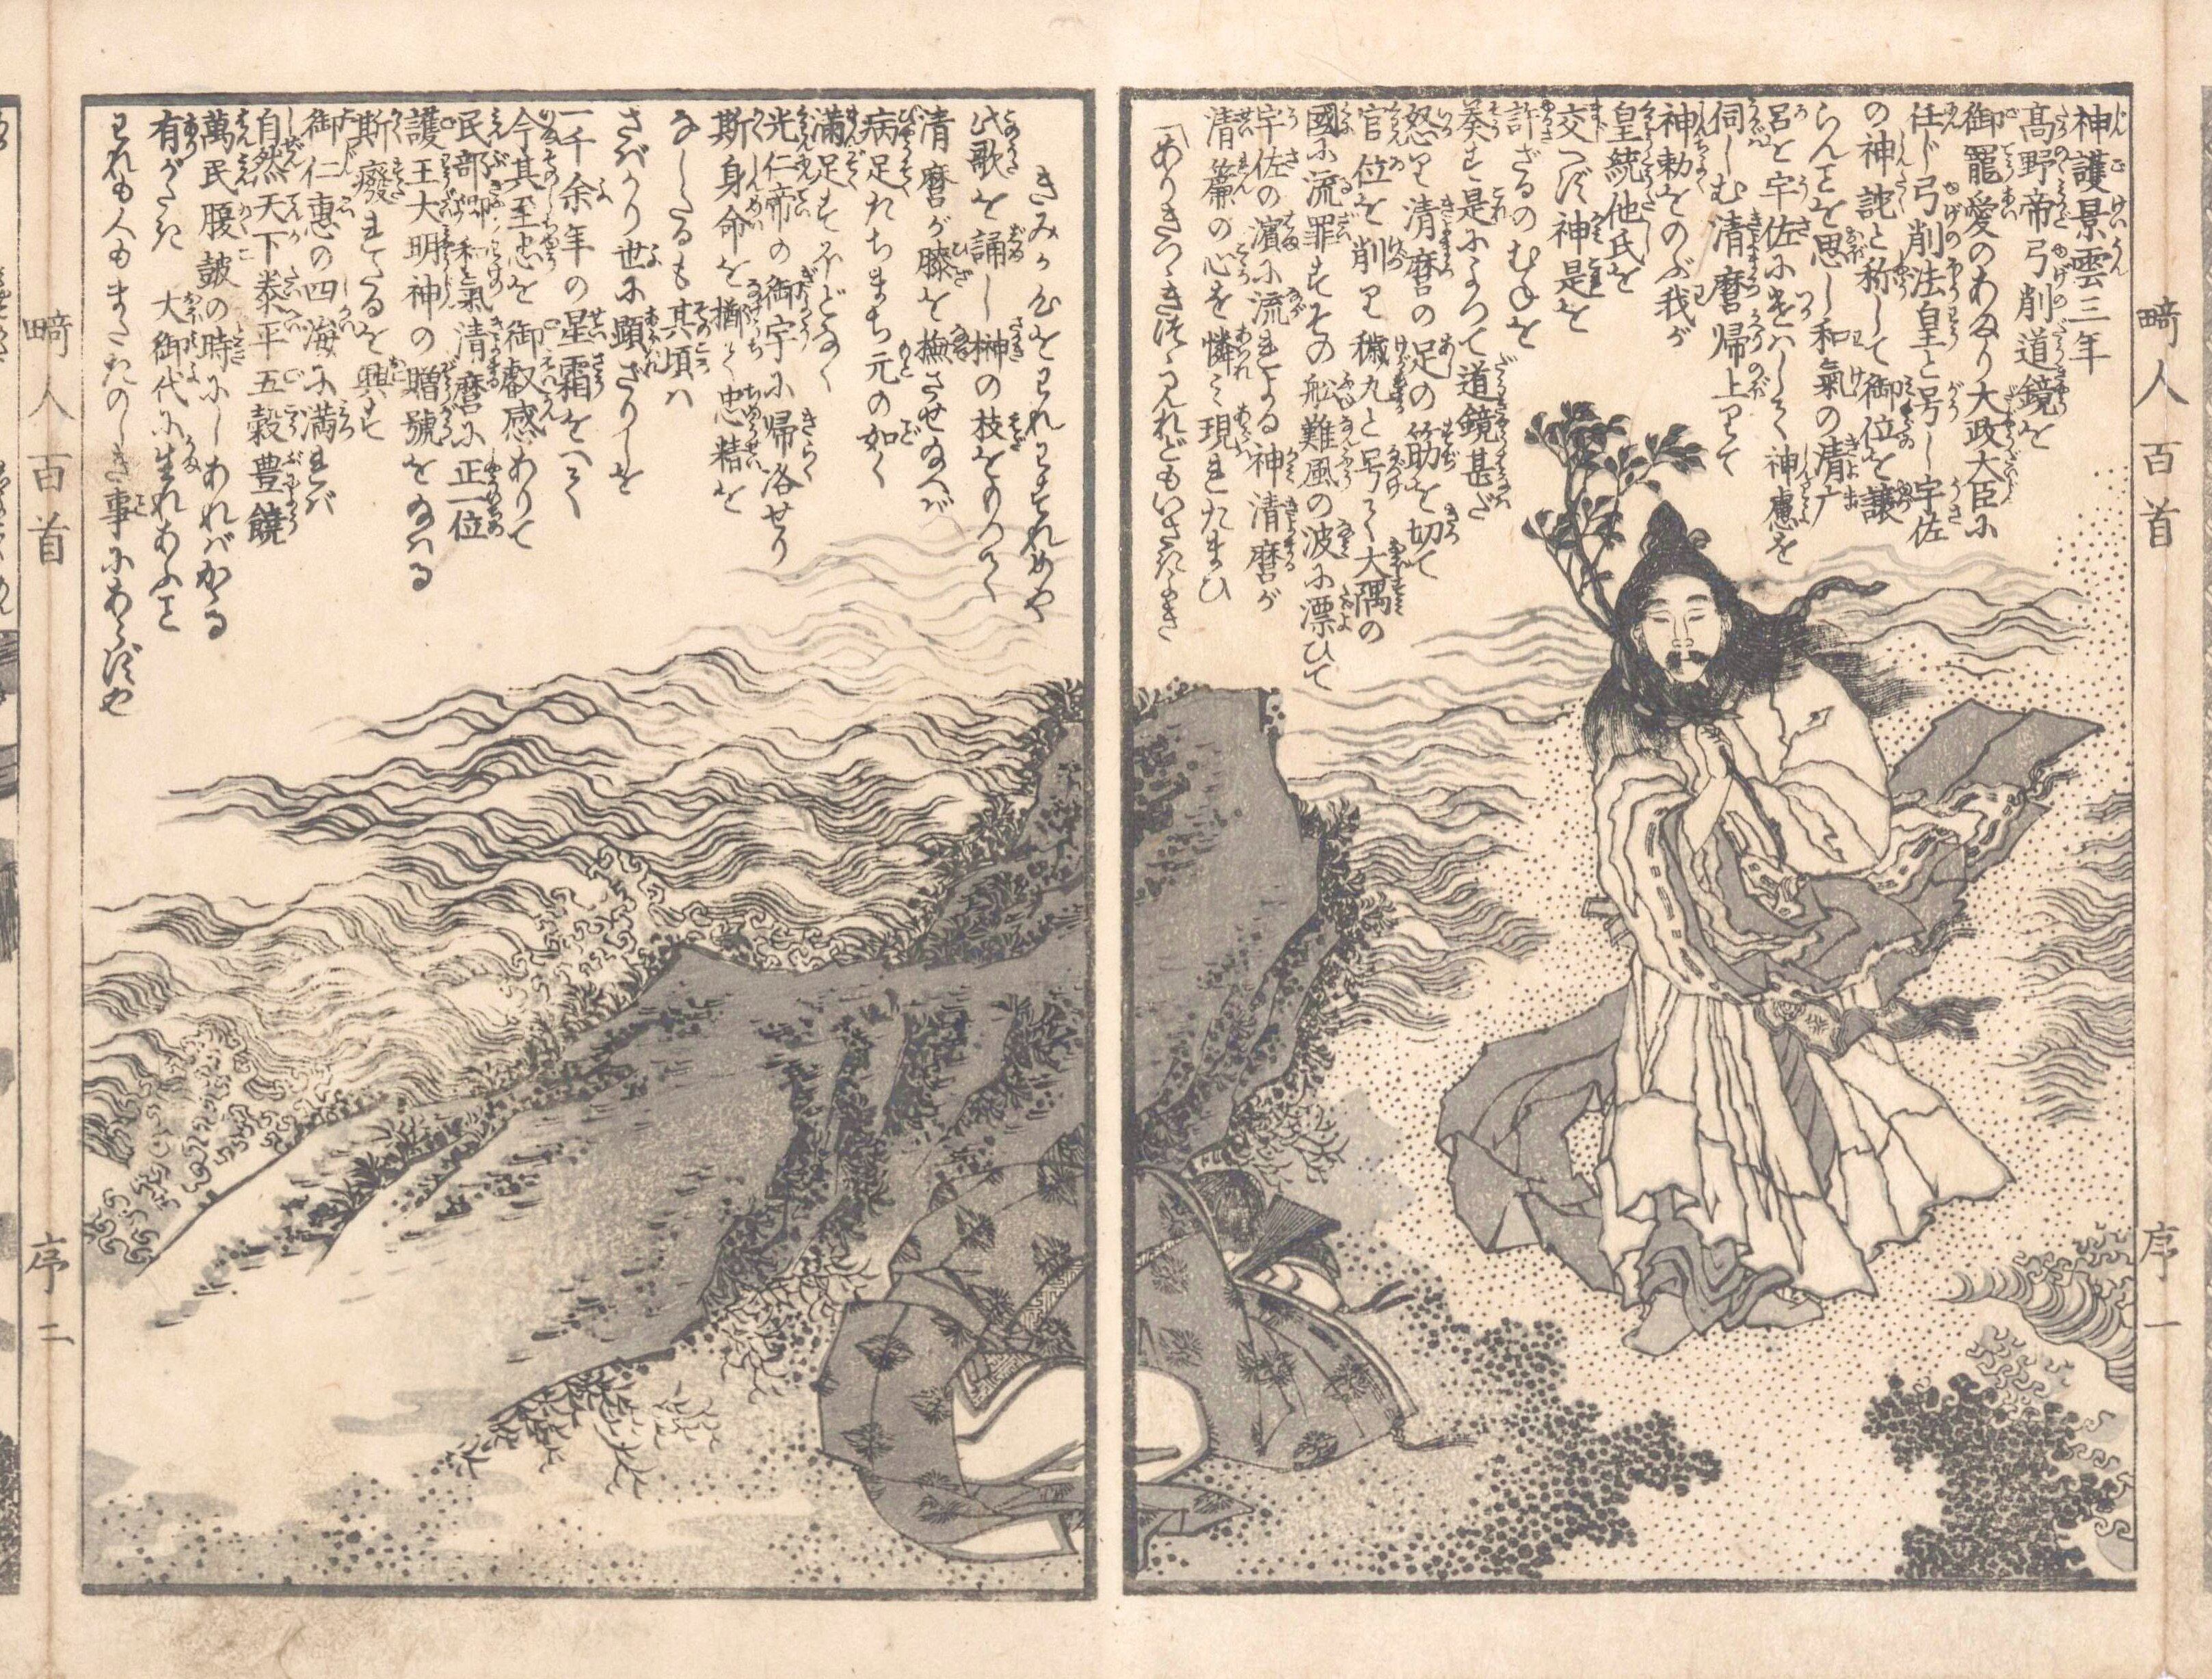 畸人百首
序一
神護景雲三年
高野帝弓削道鏡を
御寵愛のあまり大政大臣に
任じ弓削法皇と号し宇佐
の神詫と称して御位を譲
らんことを思し和氣の清麻
呂を宇佐に遣はして神慮を
伺しむ清麿帰上りて
神勅をのぶ我が
皇統他氏を
交へず神是を
許ざるのむねを
奏す是によつて道鏡甚だ
怒り清麿の足の筋を切て
官位を削り穢丸と号て大隅の
國に流罪すその舩難風の波に漂ひて
宇佐の濱に流れよる神清麿が
清簾の心を憐ミ現れたまひ
「ありきつゝきつゝ見れどもいさぎよき
きみが心をわれわすれめや
此歌を誦し榊の枝をもつて
清麿が膝を撫させ給へバ
病足たちまち元の如く
満足すほどなく
光仁帝の御宇に帰洛せり
斯身命を擲て忠精を
なしたるも其頃ハ
さばかり世に顕ざりしを
一千余年の星霜をへて
今其至忠を御叡感ありて
民部卿和氣清麿に正一位
護王大明神の贈號を給ハる
斯癈れたるを興す
御仁恵の四海に満れバ
自然天下泰平五穀豊饒
萬民腹皷の時にしあれバかゝる
有がたき大御代に生れあふこと
われも人もまたたのしき事にあらずや
畸人百首
序二